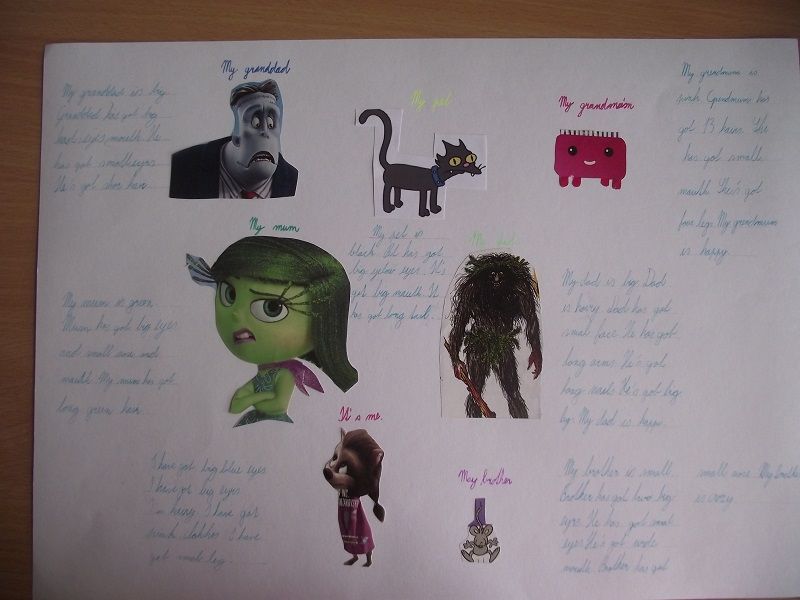 My granddad
My granddad is big
Granddad has got big
head, eyes, mouth. He
has got small eyes
He's got short hair
My pet
My pet is
black. Pet has got
big yelow eyes. It's
got big mouth. It
has got long tail.
My grandmum
My grandmum is
pink. Grandmum has
got 13 hairs. She
has got small
mouth. She's got
four legs. My grandmum
is happy.
My mum
My mum is green.
Mum has got big eyes
and small nose and
mouth. My mum has got
long green hair.
My dad
My dad is big. Dad
is hairy. Dad has got
small face. He has got
long arms. He's got
long nails. He's got big
leg. My dad is happy.
It's me.
I have got big blue eyes
I have got big eyes
I'm hairy. I have got
I have
got small leg.
May brother
My brother is small.
Brother has got two big
eyes. He has got small
eyes. He's got
mouth. Brother has got
small nose. My brother
is crazy